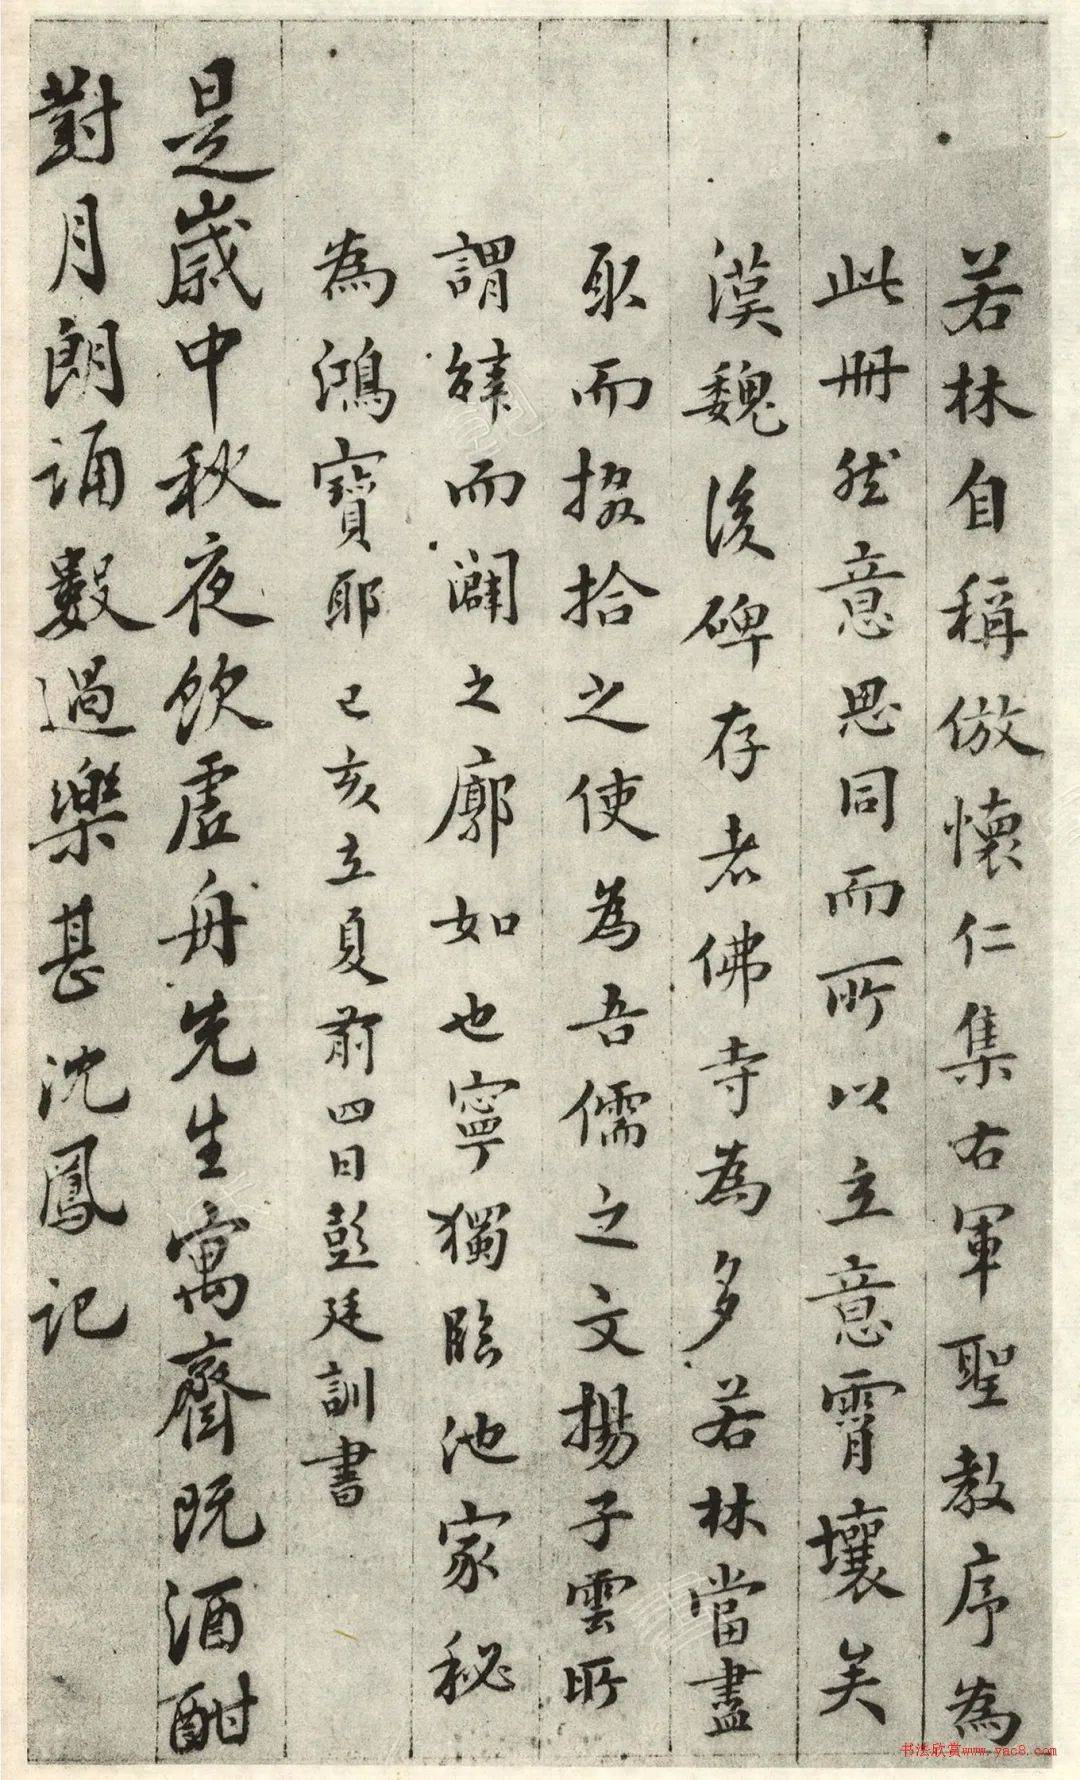 若林自稱倣懷仁集右軍聖教序為
此冊然意思同而所以立意霄壤矣
漢魏後碑存者佛寺為多若林當盡
取而掇拾之使為吾儒之文揚子雲所
謂辞而闢之廓如也寧獨臨池家秘
為鴻寶耶己亥立夏前四日彭廷訓書
是歲中秋夜飲虛舟先生寓齋既酒酣
對月朗誦數過樂甚沈鳳記
书法欣赏www.yac8.com